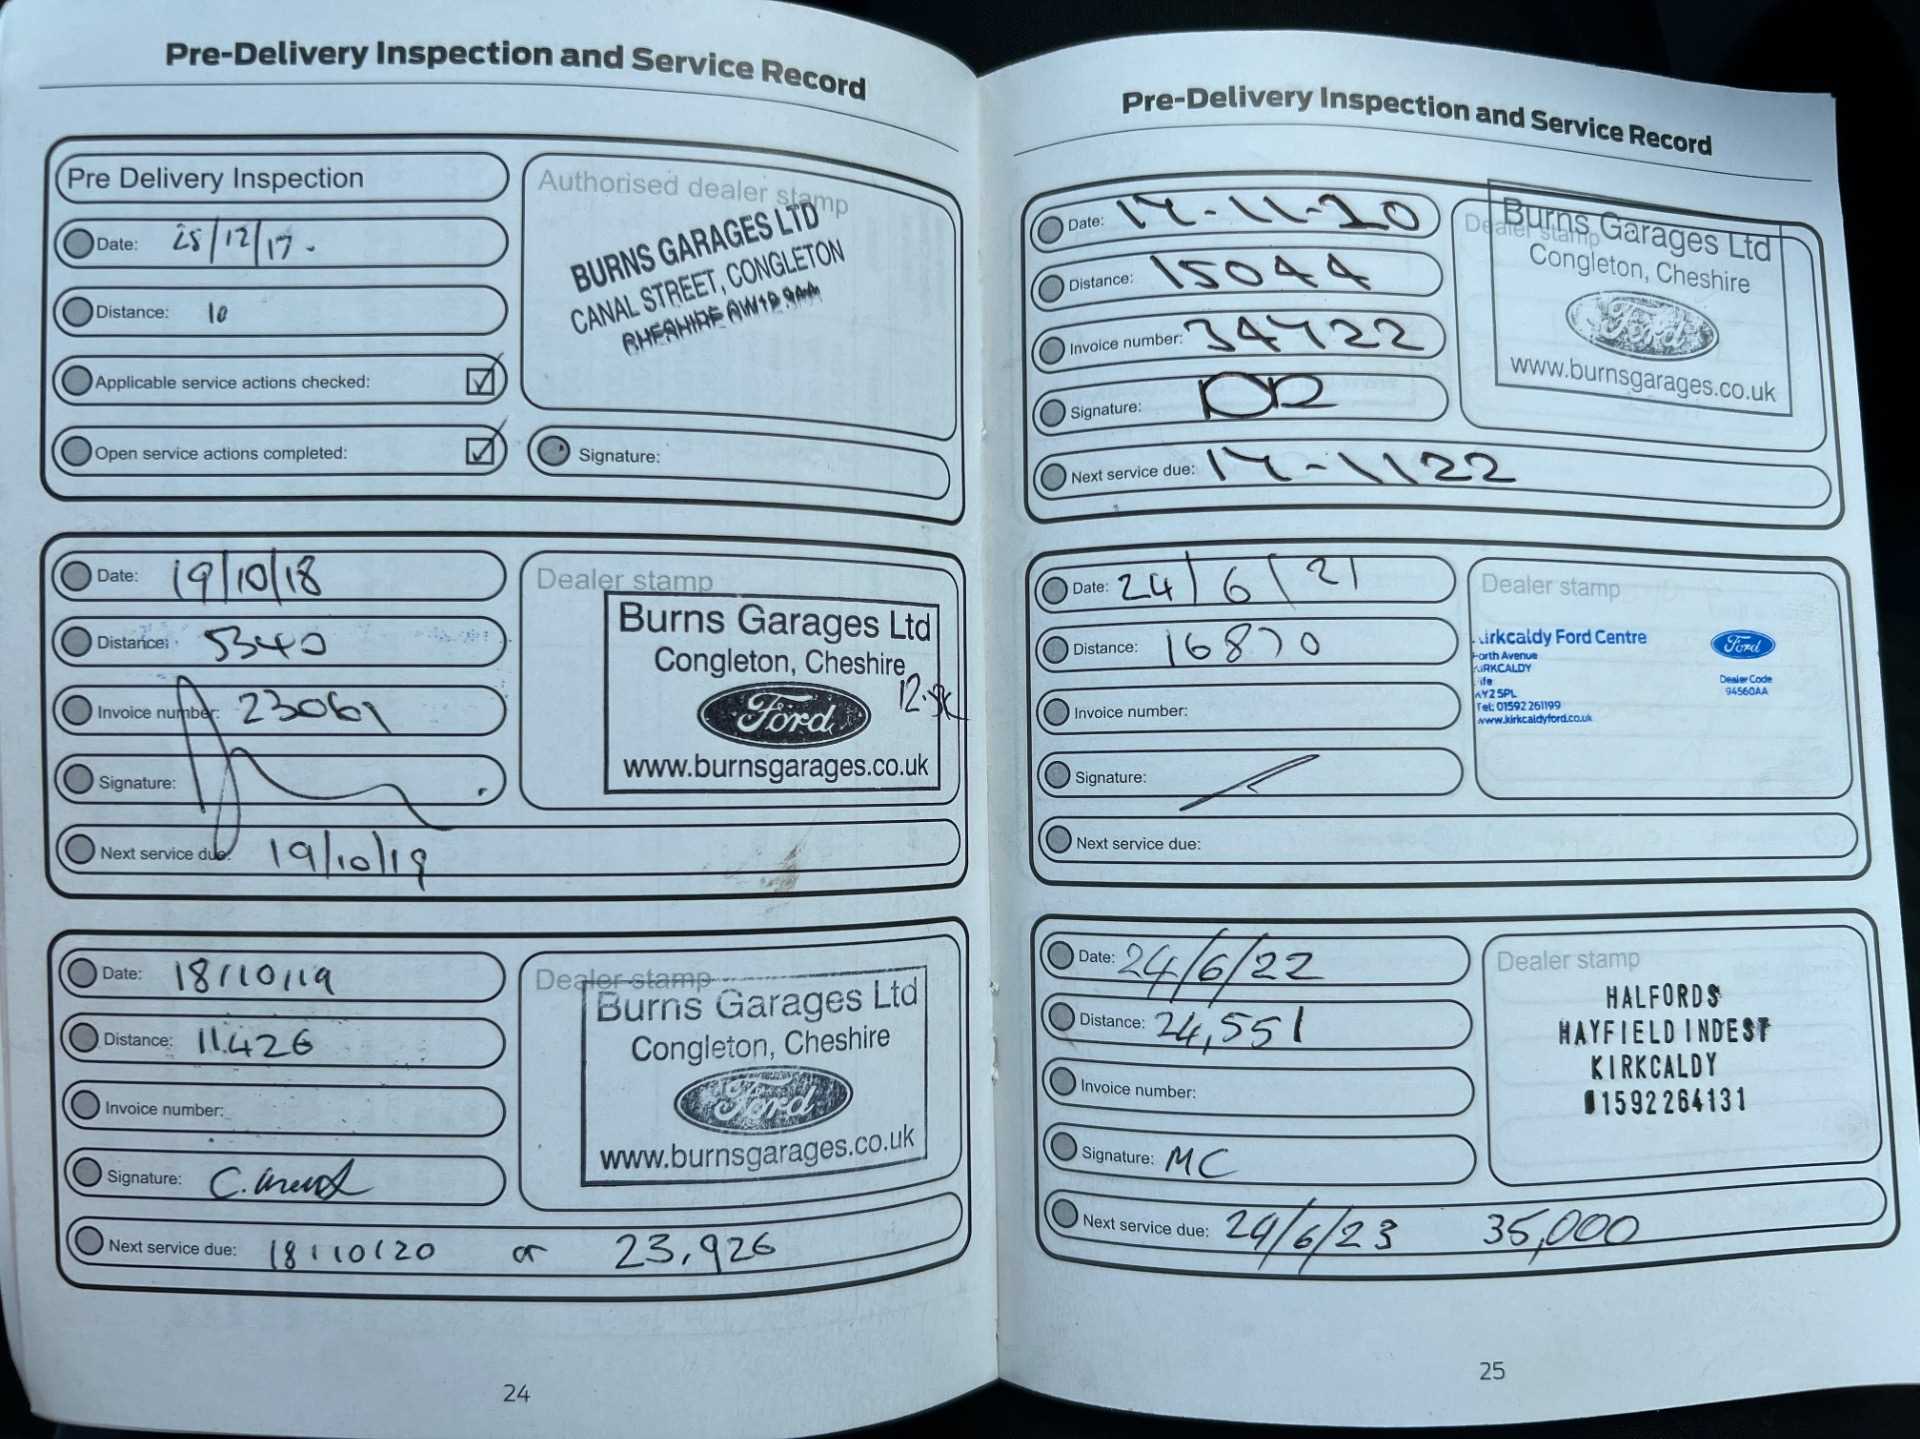 Pre-Delivery Inspection and Service Record
Pre Delivery Inspection
Date: 28/12/17.
Distance: 10
Applicable service actions checked: ☑
Open service actions completed: ☑
Authorised dealer stamp
BURNS GARAGES LTD
CANAL STREET, CONGLETON
Signature:
Date: 19/10/18
Distance: 5340
Invoice number: 23061
Signature:
Next service due: 19/10/19
Dealer stamp
Burns Garages Ltd
Congleton, Cheshire
Ford
www.burnsgarages.co.uk
Date: 18/10/19
Distance: 11426
Invoice number:
Signature:
Next service due: 18/10/20 or 23,926
Dealer stamp
Burns Garages Ltd
Congleton, Cheshire
Ford
www.burnsgarages.co.uk
24
Pre-Delivery Inspection and Service Record
Date: 17-11-20
Distance: 15044
Invoice number: 34722
Signature:
Next service due: 17-1122
Dealer stamp
Burns Garages Ltd
Congleton, Cheshire
Ford
www.burnsgarages.co.uk
Date: 24/6/21
Distance: 16870
Invoice number:
Signature:
Next service due:
Dealer stamp
irkcaldy Ford Centre
orth Avenue
KIRKCALDY
ife
KY2 5PL
Tel: 01592 261199
www.kirkcaldyford.co.uk
Ford
Dealer Code
94560AA
Date: 24/6/22
Distance: 24,551
Invoice number:
Signature: MC
Next service due: 24/6/23 35,000
Dealer stamp
HALFORDS
HAYFIELD INDEST
KIRKCALDY
01592264131
25